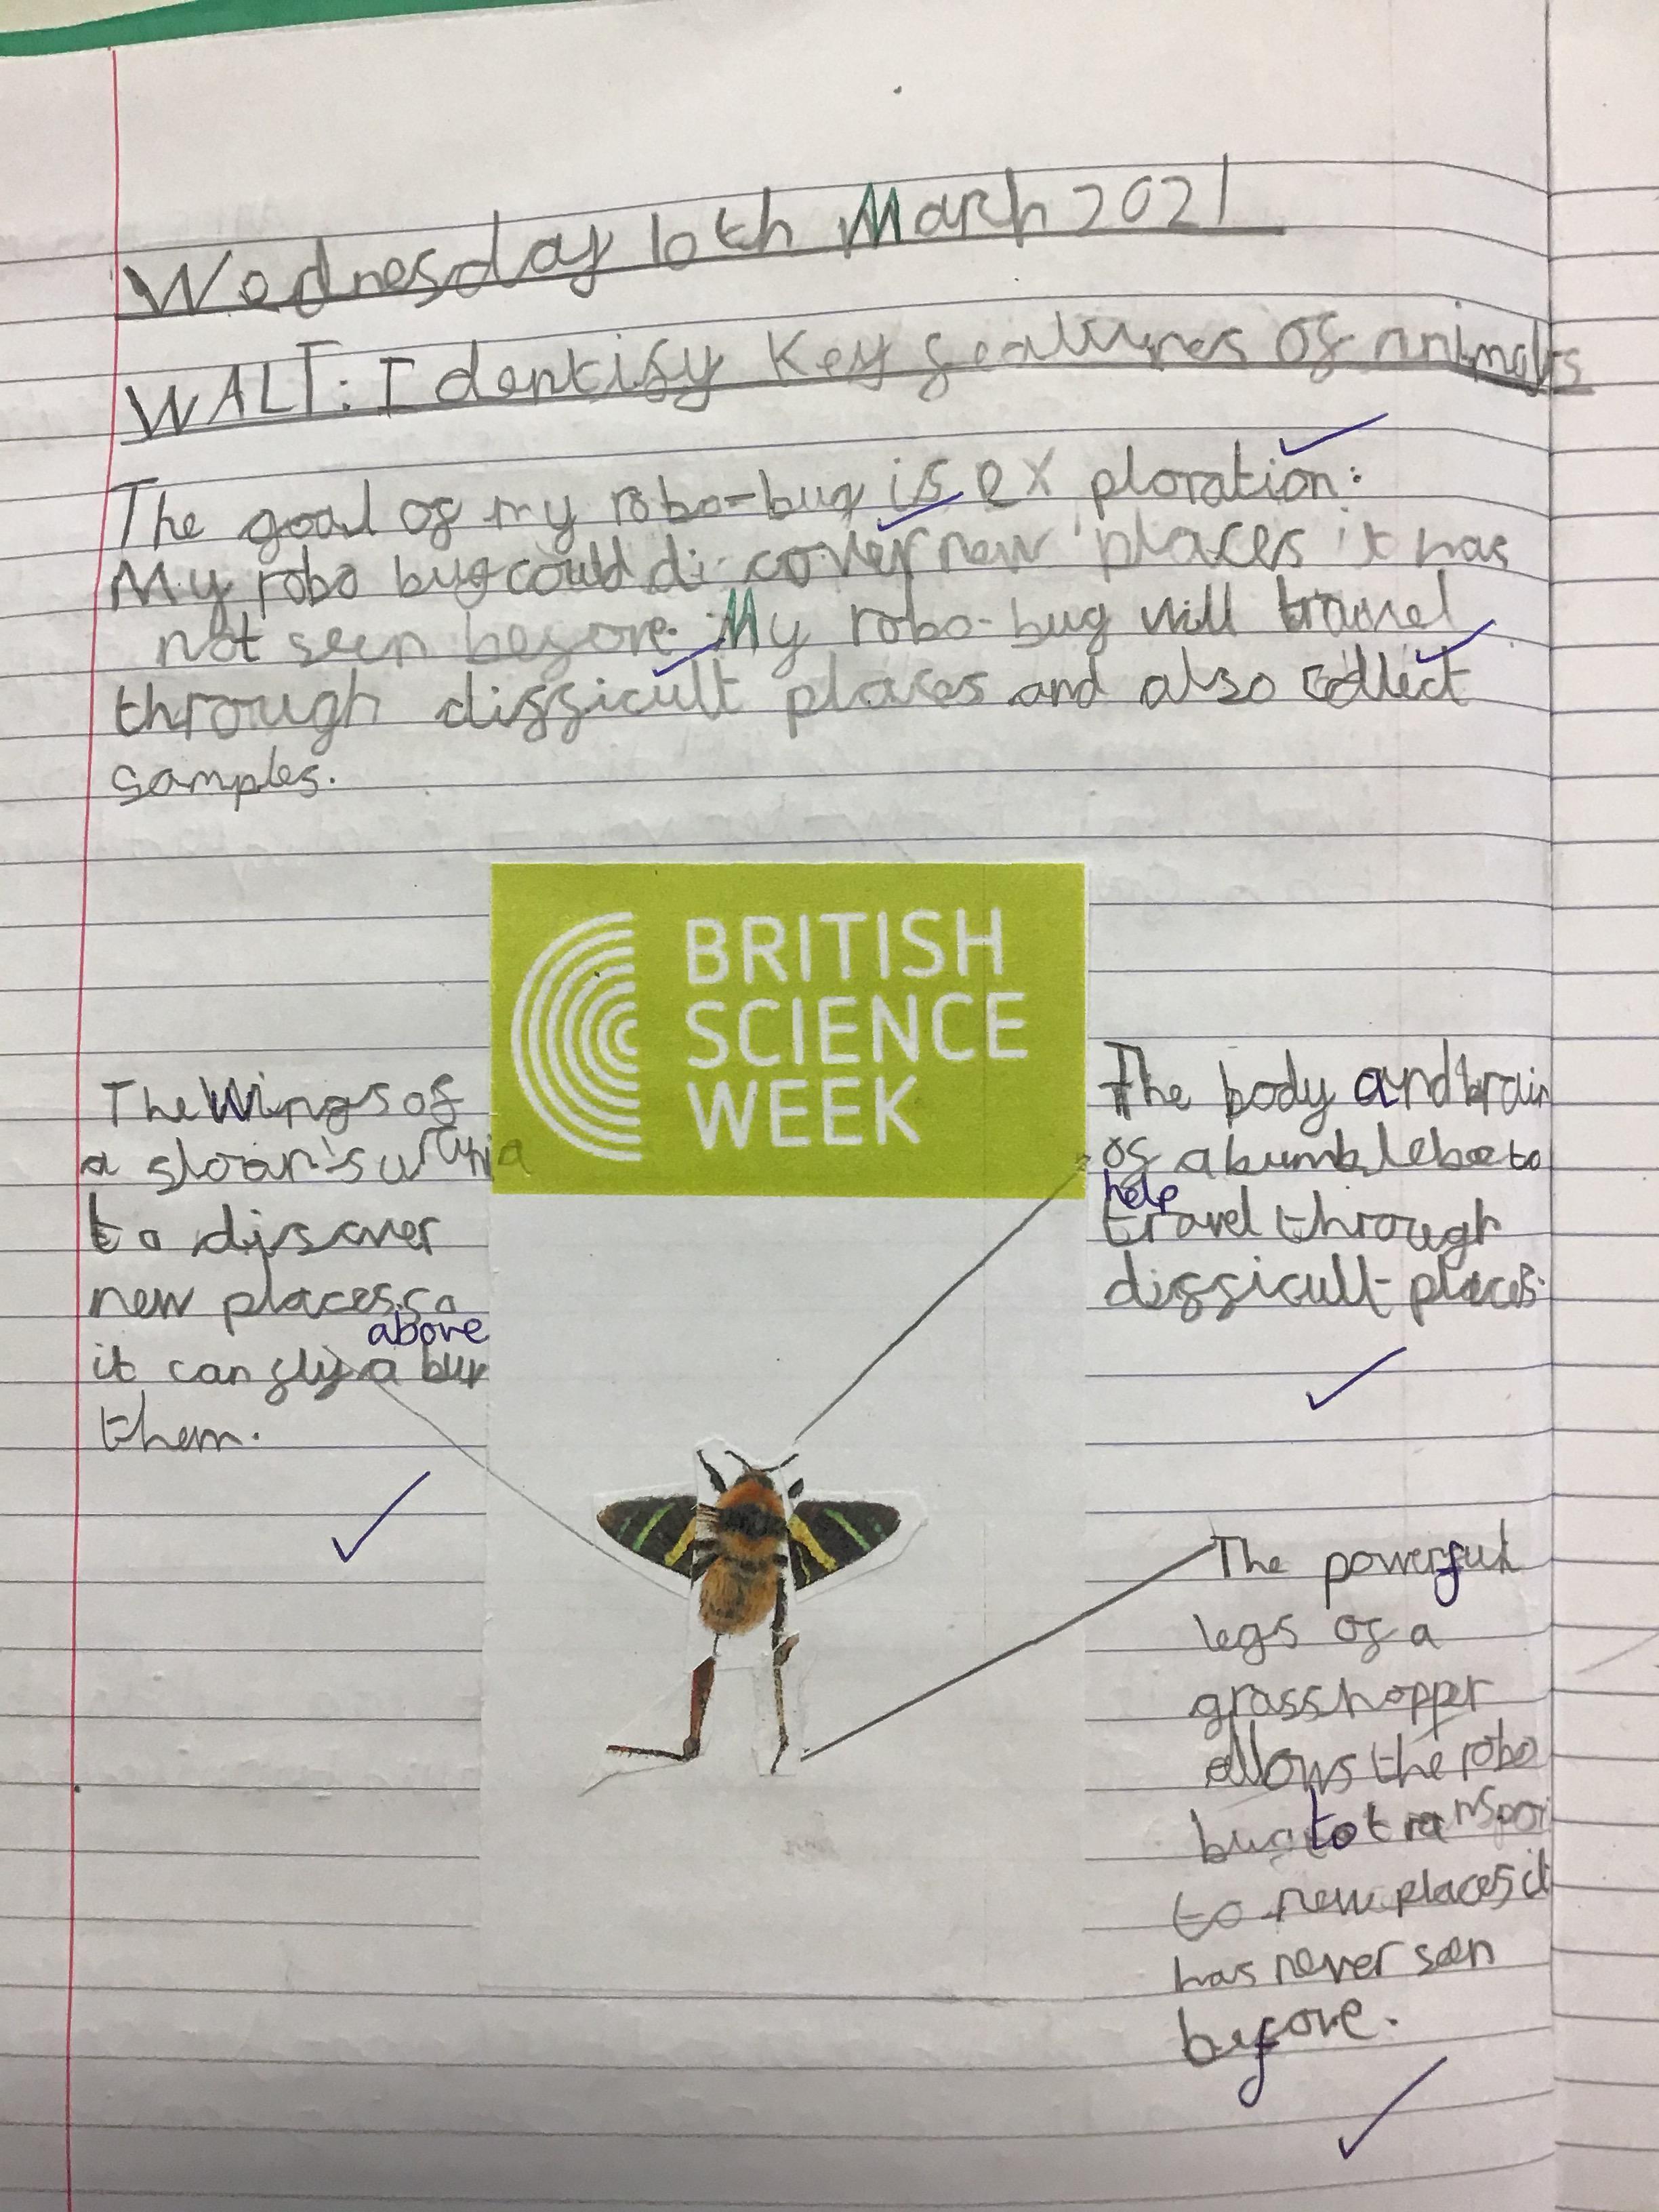 Wednesday 10th March 2021
WALT: Identify Key features of animals
The goal of my robo-bug is ex ploration.
My robo bug could discover new places it has
not seen before. My robo-bug will travel
through difficult places and also collect
samples.
BRITISH
SCIENCE
WEEK
The Wings of
a sloan's urania
to discover
new places so
above
it can fly a buv
them.
The body and brain
of a bumblebee to
help
travel through
difficult places.
The powerful
legs of a
grasshopper
allows the robo
bug to transpor
to new places it
has never seen
before.